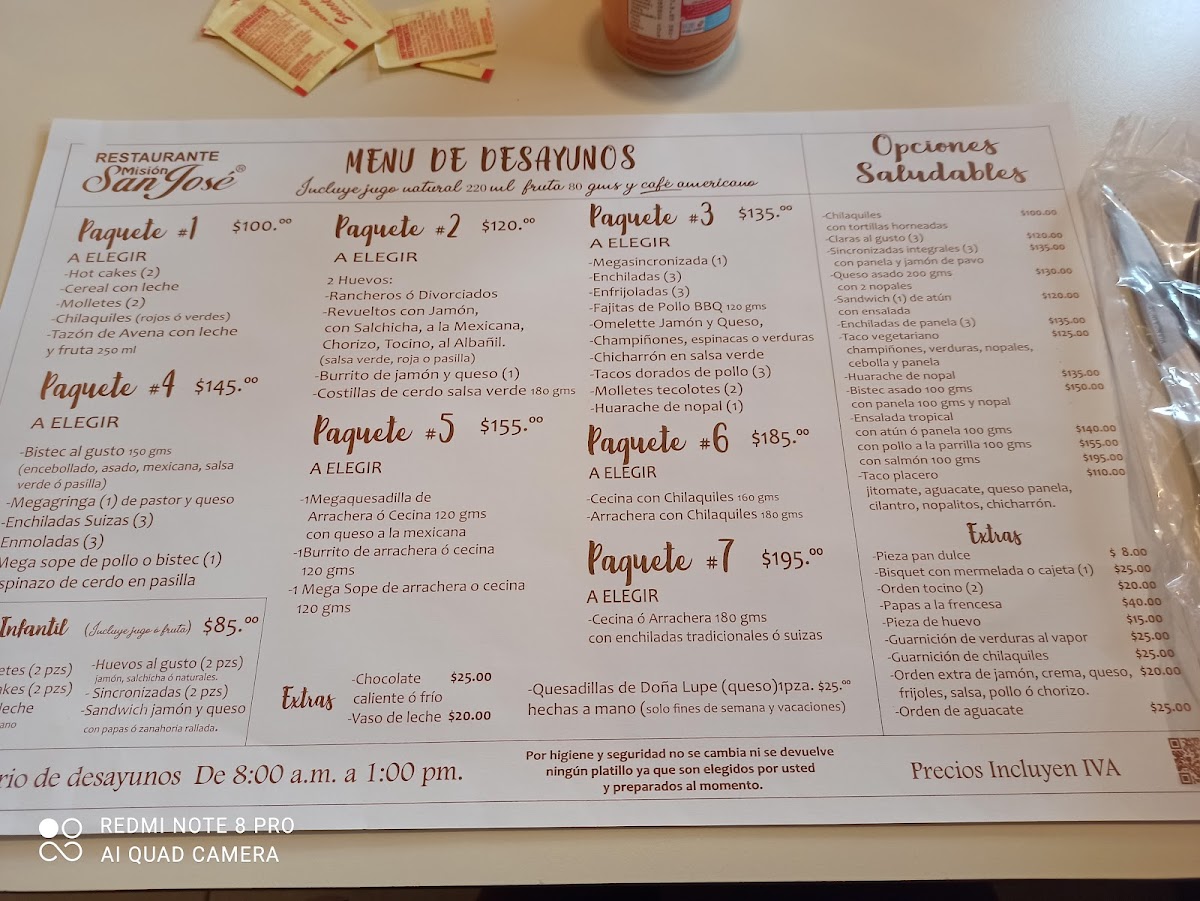 RESTAURANTE
Misión
San José®
MENU DE DESAYUNOS
Incluye jugo natural 220 ml fruta 80 gms y café americano
Paquete #1 $100.00
A ELEGIR
-Hot cakes (2)
-Cereal con leche
-Molletes (2)
-Chilaquiles (rojos ó verdes)
-Tazón de Avena con leche
y fruta 250 ml
Paquete #2 $120.00
A ELEGIR
2 Huevos:
-Rancheros ó Divorciados
-Revueltos con Jamón,
con Salchicha, a la Mexicana,
Chorizo, Tocino, al Albañil.
(salsa verde, roja o pasilla)
-Burrito de jamón y queso (1)
-Costillas de cerdo salsa verde 180 gms
Paquete #3 $135.00
A ELEGIR
-Megasincronizada (1)
-Enchiladas (3)
-Enfrijoladas (3)
-Fajitas de Pollo BBQ 120 gms
-Omelette Jamón y Queso,
-Champiñones, espinacas o verduras
-Chicharrón en salsa verde
-Tacos dorados de pollo (3)
-Molletes tecolotes (2)
-Huarache de nopal (1)
Paquete #4 $145.00
A ELEGIR
-Bistec al gusto 150 gms
(encebollado, asado, mexicana, salsa
verde ó pasilla)
-Megagringa (1) de pastor y queso
-Enchiladas Suizas (3)
Enmoladas (3)
Mega sope de pollo o bistec (1)
spinazo de cerdo en pasilla
Paquete #5 $155.00
A ELEGIR
-1Megaquesadilla de
Arrachera ó Cecina 120 gms
con queso a la mexicana
-1Burrito de arrachera ó cecina
120 gms
-1 Mega Sope de arrachera o cecina
120 gms
Paquete #6 $185.00
A ELEGIR
-Cecina con Chilaquiles 160 gms
-Arrachera con Chilaquiles 180 gms
Paquete #7 $195.00
A ELEGIR
-Cecina ó Arrachera 180 gms
con enchiladas tradicionales ó suizas
Infantil (Incluye jugo ó fruta) $85.00
etes (2 pzs)
akes (2 pzs)
leche
ano
-Huevos al gusto (2 pzs)
jamón, salchicha ó naturales.
- Sincronizadas (2 pzs)
-Sandwich jamón y queso
con papas ó zanahoria rallada.
Extras
-Chocolate $25.00
caliente ó frío
-Vaso de leche $20.00
-Quesadillas de Doña Lupe (queso)1pza. $25.00
hechas a mano (solo fines de semana y vacaciones)
Opciones
Saludables
-Chilaquiles $100.00
con tortillas horneadas
-Claras al gusto (3) $120.00
-Sincronizadas integrales (3) $135.00
con panela y jamón de pavo
-Queso asado 200 gms $130.00
con 2 nopales
-Sandwich (1) de atún $120.00
con ensalada
-Enchiladas de panela (3) $135.00
-Taco vegetariano $125.00
champiñones, verduras, nopales,
cebolla y panela
-Huarache de nopal $135.00
-Bistec asado 100 gms $150.00
con panela 100 gms y nopal
-Ensalada tropical
con atún ó panela 100 gms $140.00
con pollo a la parrilla 100 gms $155.00
con salmón 100 gms $195.00
-Taco placero $110.00
jitomate, aguacate, queso panela,
cilantro, nopalitos, chicharrón.
Extras
-Pieza pan dulce $ 8.00
-Bisquet con mermelada o cajeta (1) $25.00
-Orden tocino (2) $20.00
-Papas a la frencesa $40.00
-Pieza de huevo $15.00
-Guarnición de verduras al vapor $25.00
-Guarnición de chilaquiles $25.00
-Orden extra de jamón, crema, queso, $20.00
frijoles, salsa, pollo ó chorizo.
-Orden de aguacate $25.00
rio de desayunos De 8:00 a.m. a 1:00 pm.
Por higiene y seguridad no se cambia ni se devuelve
ningún platillo ya que son elegidos por usted
y preparados al momento.
Precios Incluyen IVA
REDMI NOTE 8 PRO
AI QUAD CAMERA